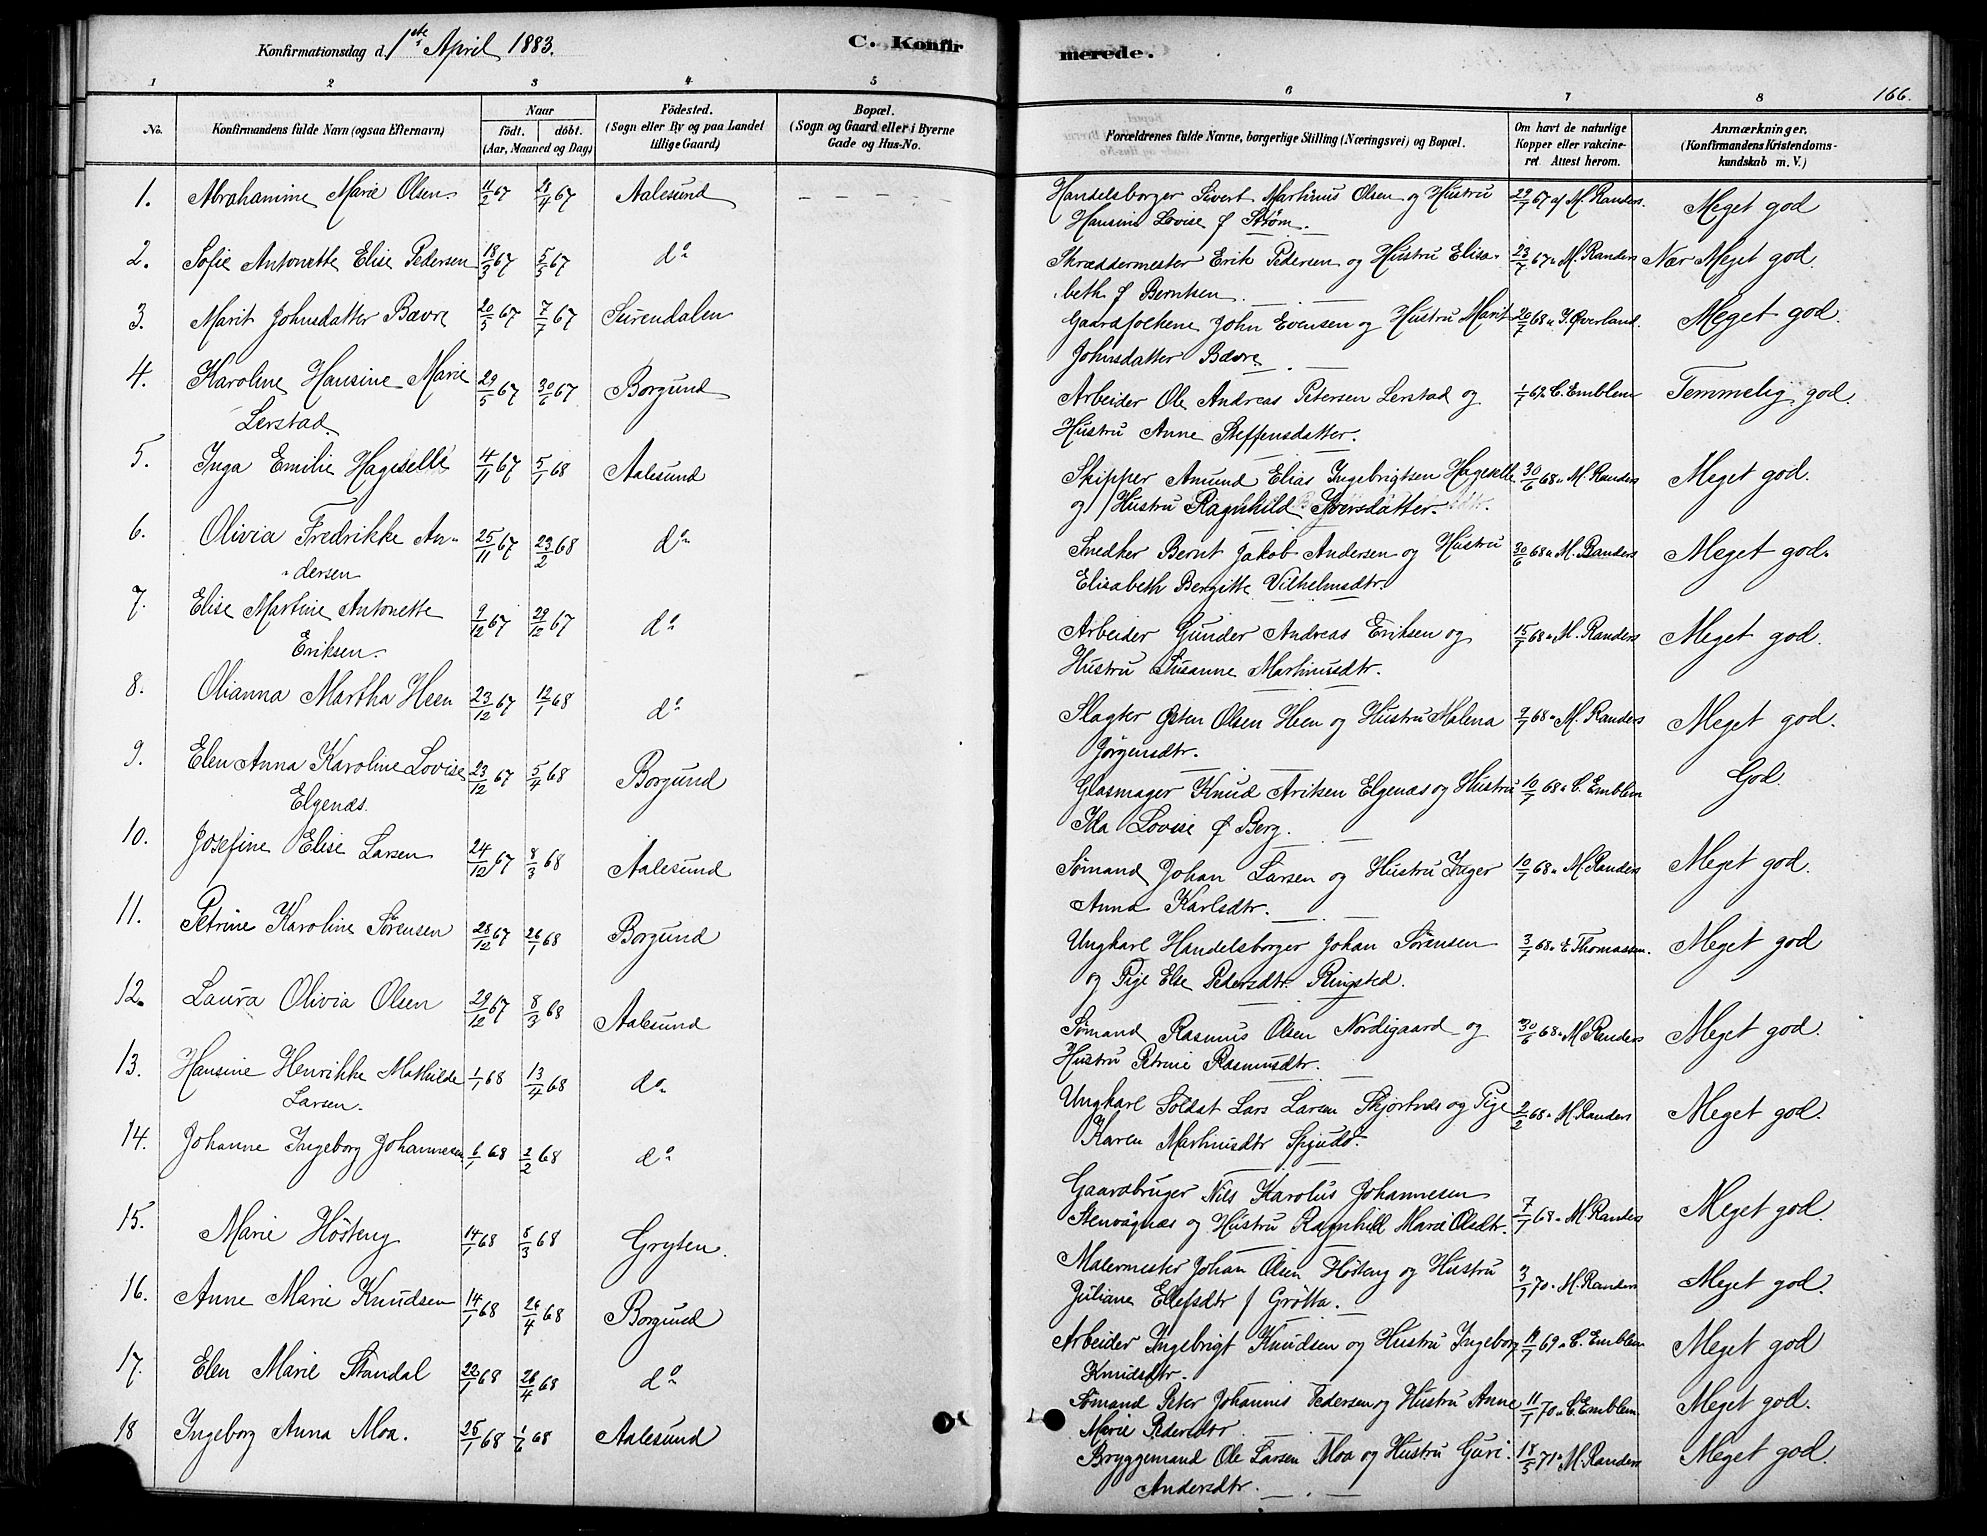 Konfirmationsdag d. 1ste April 1883.
C. Konfirmerede.
166.
1 2 3 4 5 6 7 8
No.
Konfirmandens fulde Navn (ogsaa Efternavn)
Naar
födt. döbt.
(Aar, Maaned og Dag)
Födested.
(Sogn eller By og paa Landet
tillige Gaard)
Bopæl.
(Sogn og Gaard eller i Byerne
Gade og Hus-No.
Forældrenes fulde Navne, borgerlige Stilling (Næringsvei) og Bopæl.
Om havt de naturlige
Kopper eller vakcine-
ret. Attest herom.
Anmærkninger.
(Konfirmandens Kristendoms-
kundskab m. V.)
1. Abrahamine Marie Olsen. 11/2 67 28/4 67 Aalesund — — — — Handelsborger Sivert Martinus Olsen og Hustru 29/7 67 af M. Randers. Meget god
Hansine Lovise f Strøm.
2. Sofie Antonette Elise Pedersen 18/3 67 5/5 67 do Skræddermester Erik Pedersen og Hustru Elisa- 23/7 67 " M. Randers Nær Meget god.
beth f Berntsen
3. Marit Johnsdatter Bævre 20/5 67 7/7 67 Surendalen Gaardfolkene John Evensen og Hustru Marit 20/7 68 " J. Øverland. Meget god.
Johnsdatter Bævre
4. Karoline Hansine Marie 29/5 67 30/6 67 Borgund Arbeider Ole Andreas Petersen Lerstad og C. Emblem Temmelig god.
Lerstad. Hustru Anne Steffensdatter.
5. Inga Emilie Hageselle 4/11 67 5/1 68 Aalesund Skipper Amund Elias Ingebrigtsen Hageselle 30/6 68 " M. Randers Meget god.
og Hustru Ragnhild Iversdatter.
6. Olivia Fredrikke An- 25/11 67 23/2 68 do Snedker Bernt Jakob Andersen og Hustru 30/6 68 " M. Randers Meget god.
dersen Elisabeth Bergitte Vilhelmsdtr.
7. Elise Martine Antonette 9/12 67 29/12 67 do Arbeider Gunder Andreas Eriksen og 15/7 68 " M. Randers Meget god.
Eriksen. Hustru Susanne Martinusdtr.
8. Olianna Martha Heen 23/12 67 12/1 68 do Slagter Østen Olsen Heen og Hustru Malena 9/7 68 " M. Randers Meget god.
Jørgensdtr.
9. Elen Anna Karoline Lovise 23/12 67 5/4 68 Borgund Glasmager Knud Ariksen Elgenæs og Hustru 10/7 68 " C. Emblem God.
Elgenæs. Ida Lovise f Berg.
10. Josefine Elise Larsen 24/12 67 8/3 68 Aalesund Sømand Johan Larsen og Hustru Inger 10/7 68 " M. Randers Meget god.
Anna Karlsdtr.
11. Petrine Karoline Sørensen 28/12 67 26/1 68 Borgund Ungkarl Handelsborger Johan Sørensen 3/7 68 " E Thomassen. Meget god
og Pige Else Pedersdtr Ringsted.
12. Laura Olivia Olsen 29/12 67 8/3 68 Aalesund Sømand Rasmus Olsen Nordigaard og 30/6 68 " M Randers Meget god.
Hustru Petrine Rasmusdtr.
13. Hansine Henrikke Mathilde 1/1 68 13/4 68 do Ungkarl Soldat Lars Larsen Skjortnes og Pige 2/2 68 " M. Randers Meget god.
Larsen. Karen Martinusdtr
14. Johanne Ingeborg Johannesen 6/1 68 2/2 68 do Gaardbruger Nils Karolus Johannesen 7/7 68 " M. Randers Meget god.
Stenvågnæs og Hustru Ragnhild Marie Olsdtr.
15. Marie Hösteng 14/1 68 8/3 68 Gryten. Malermester Johan Olsen Hösteng og Hustru 70 " M. Randers Meget god.
Juliane Ellefsdtr f Grötta.
16. Anne Marie Knudsen 14/1 68 26/4 68 Borgund Arbeider Ingebrigt Knudsen og Hustru Ingeborg 69 " C. Emblem Meget god
Knudsdtr.
17. Elen Marie Standal 22/1 68 26/4 68 do Sømand Peter Johannes Pedersen og Hustru Anne 11/7 70 " C. Emblem. Meget god.
Marie Pedersdtr
18 Ingeborg Anna Moa. 25/1 68 1/6 68 Aalesund Bryggemand Ole Larsen Moa og Hustru Guri 18/5 71 " M. Randers Meget god.
Andersdtr.